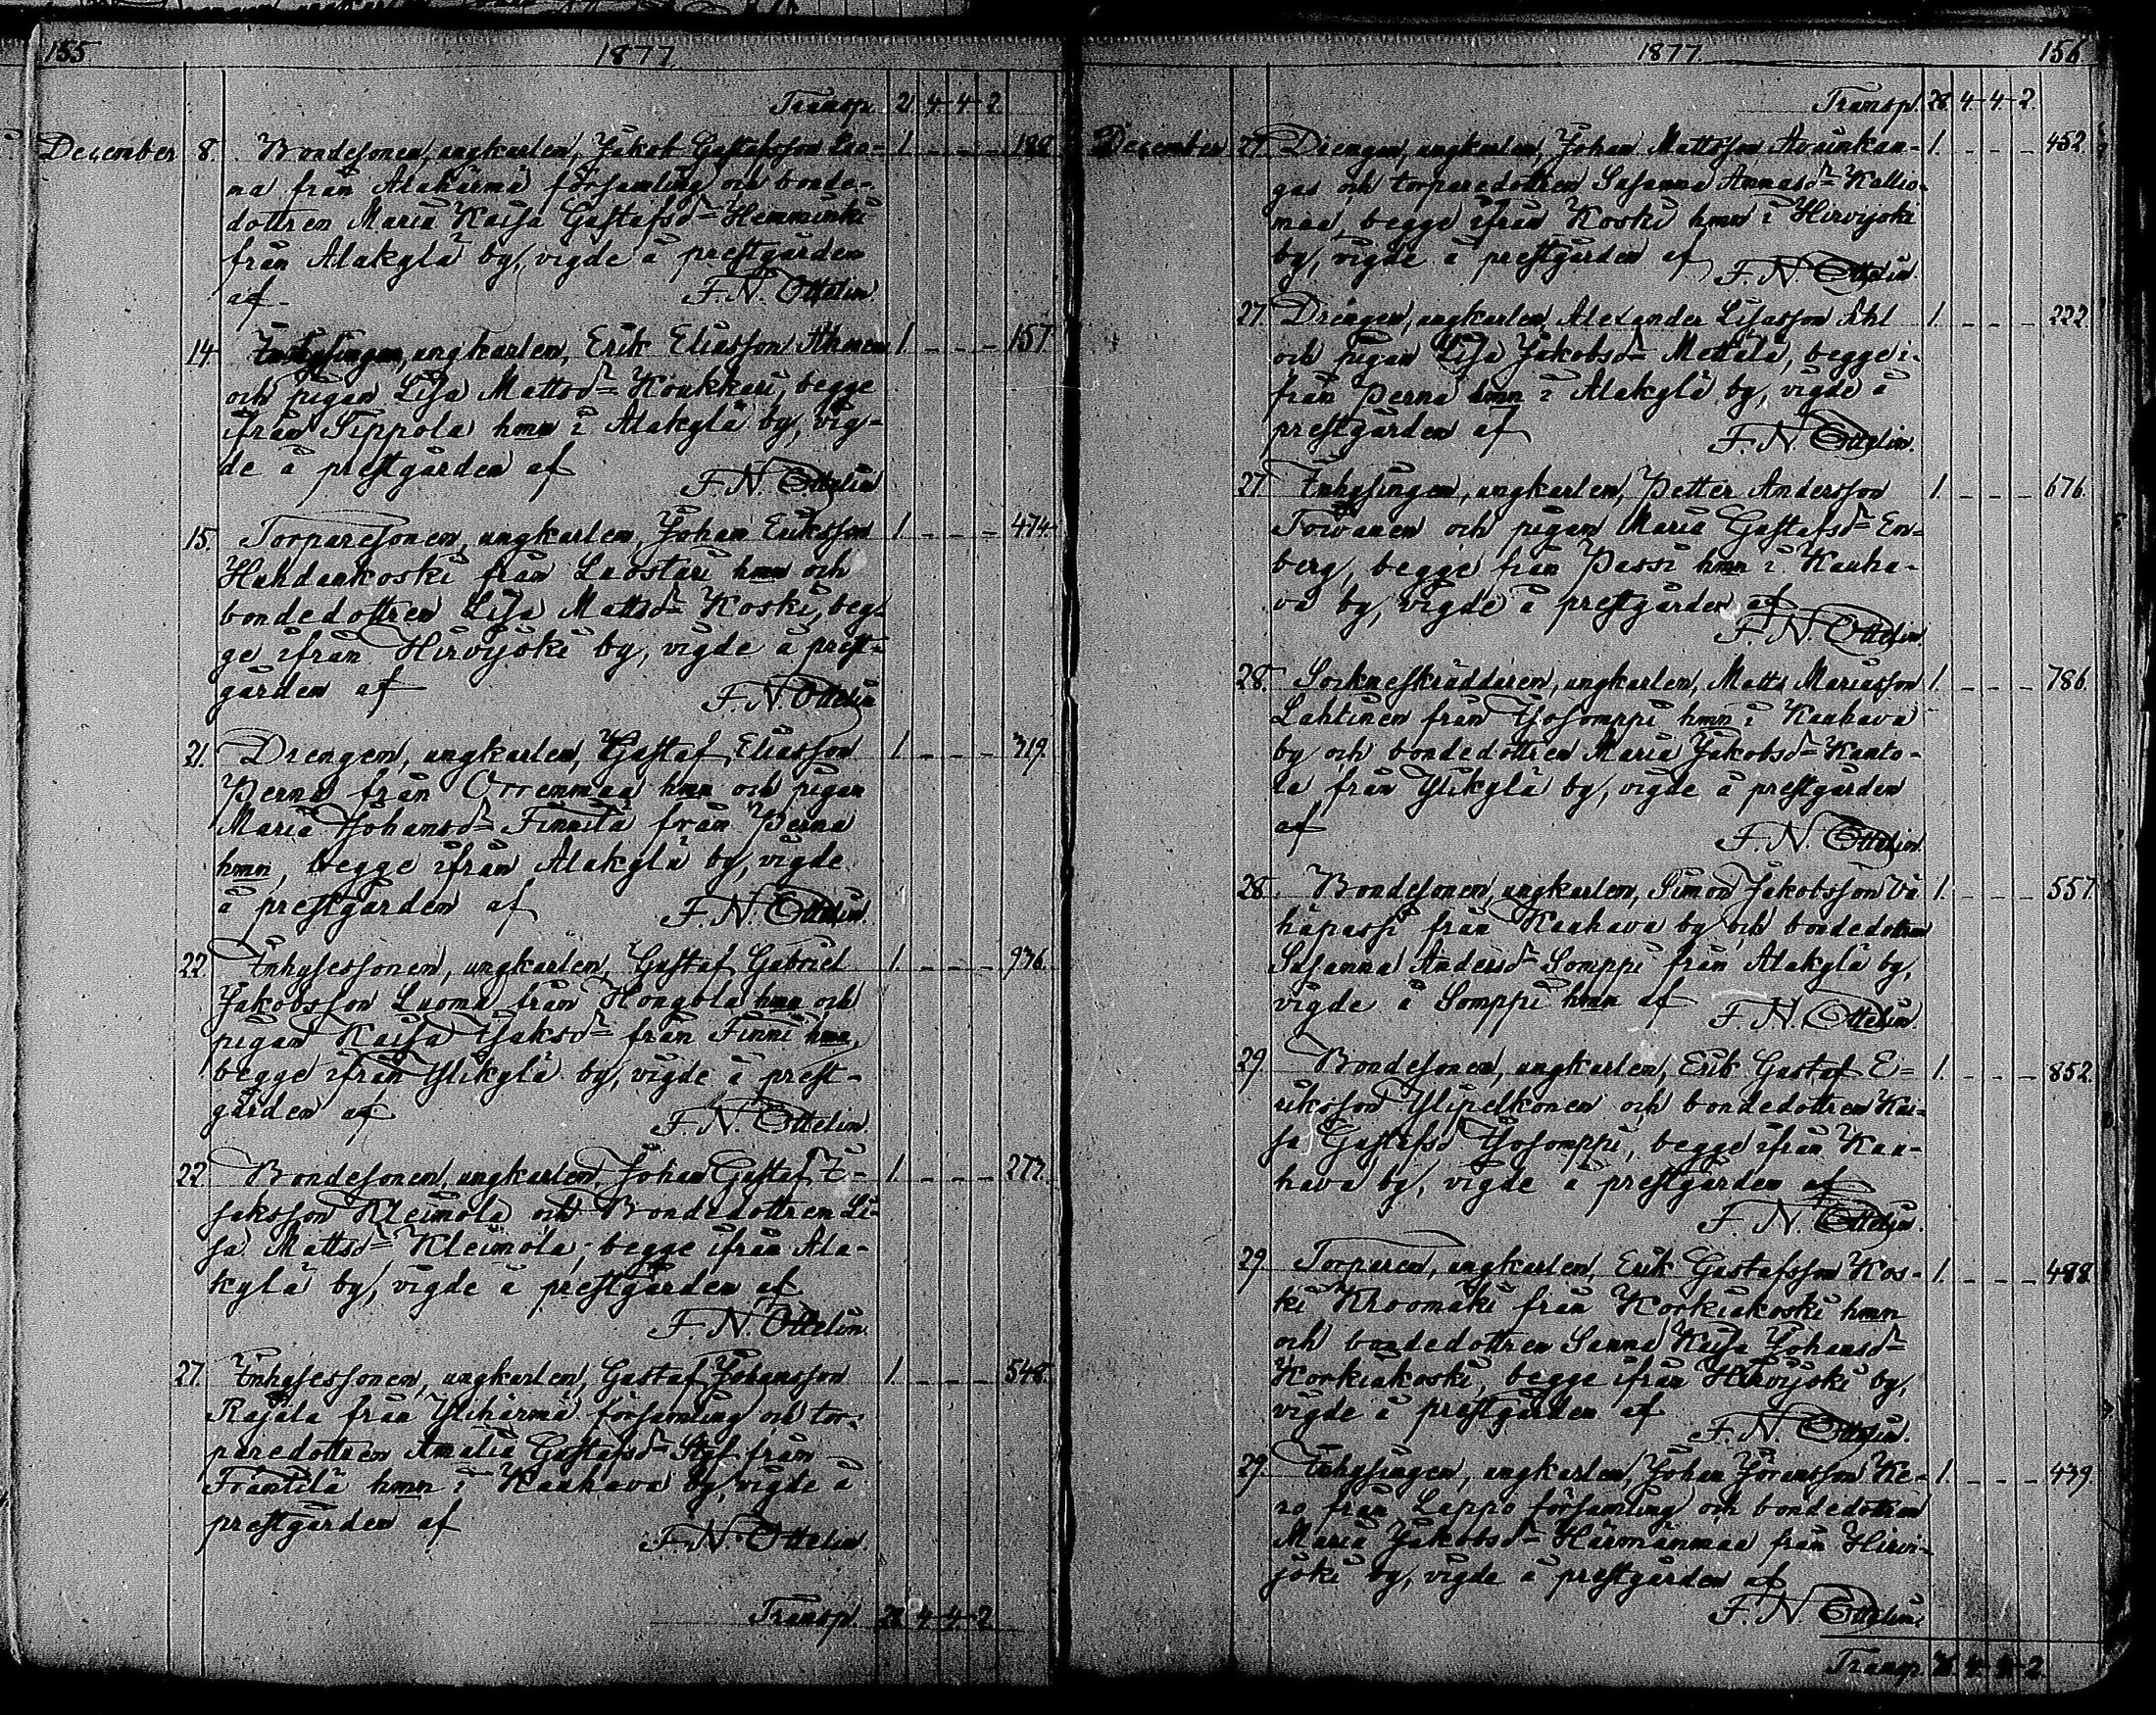 155 1877.
Transp. 21. 4. 4. 2.
December 8. Bondesonen, ungkarlen, Jakob Gustafsson 1. - - - 188.
na från Alahärmä församling och bonde-
dottren Maria Kaisa Gustafsdr Hemminki
från Alakylä by, vigde å prestgården
af F. N. Ottelin.
14. Inhysingen, ungkarlen, Erik Eliasson 1. - - - 157.
och pigan Lisa Mattsdr Koukkari, begge
ifrån Tippola hmn i Alakylä by, vig-
de å prestgården af F. N. Ottelin
15. Torparesonen, ungkarlen, Johan Eriksson 1. - - - 474.
Huhdankoski från Luostari hmn och
bondedottren Lisa Mattsdr Koski, beg-
ge ifrån Hirvijoki by, vigde å prest-
gården af F. N. Ottelin
21. Drengen, ungkarlen, Gustaf Eliasson 1. - - - 319.
Perna från Orrenmaa hmn och pigan
Maria Johansdr Finnilä från Perna
hmn, begge ifrån Alakylä by, vigde
å prestgården af F. N. Ottelin.
22. Inhysessonen, ungkarlen, Gustaf Gabriel 1. - - - 936.
Jakobsson Luoma från Hougola hmn och
pigan Kaisa Isaksdr från Finni hmn,
begge ifrån Ylikylä by, vigde å prest-
gården af F. N. Ottelin.
22. Bondesonen, ungkarlen, Johan Gustaf I- 1. - - - 277.
saksson Kleimola och Bondedottren Li-
sa Mattsdr Kleimola, begge ifrån Ala-
kylä by, vigde å prestgården af
F. N. Ottelin.
27. Inhysessonen, ungkarlen, Gustaf Johansson 1. - - - 548.
Rajala från Ylihärmä församling och tor-
paredottren Amalia Gustafsdr Styf från
Frantilä hmn i Kauhava by, vigde å
prestgården af F. N. Ottelin.
Transp. 28. 4. 4. 2.
1877. 156.
Transp. 28. 4. 4. 2.
December 27. Drengen, ungkarlen, Johan Mattsson Avunkan- 1. - - - 452.
gas och torparedottren Susanna Annasdr Kallio-
maa, begge ifrån Koski hmn i Hirvijoki
by, vigde å prestgården af F. N. Ottelin.
27. Drengen, ungkarlen, Alexander Lisasson Ahl 1. - - - 222.
och pigan Lisa Jakobsdr Mettälä, begge i-
från Perna hmn i Alakylä by, vigde å
prestgården af F. N. Ottelin.
27. Inhysingen, ungkarlen, Petter Andersson 1. - - - 676.
Toivanen och pigan Maria Gustafsdr En-
berg, begge från Passi hmn i Kauha-
va by, vigde å prestgården af
F. N. Ottelin.
28. Sockneskräddaren, ungkarlen, Matts Mariasson 1. - - - 786.
Lahtinen från Isosomppi hmn i Kauhava
by och bondedottren Maria Jakobsdr Kanto-
la från Ylikylä by, vigde å prestgården
af F. N. Ottelin.
28. Bondesonen, ungkarlen, Simon Jakobsson Vä 1. - - - 557.
häpassi från Kauhava by och bondedottren
Susanna Andersdr Somppi från Alakylä by,
vigde å Somppi hmn af F. N. Ottelin.
29. Bondesonen, ungkarlen, Erik Gustaf E- 1. - - - 852.
riksson Ylipelkonen och bondedottren Kai-
sa Gustafsdr Isosomppi, begge ifrån Kau-
hava by, vigde å prestgården af
F. N. Ottelin.
29. Torparen, ungkarlen, Erik Gustafsson Kos- 1. - - - 488.
ki Kroomäki från Korkiakoski hmn
och bondedottren Sanna Kaisa Johansdr
Korkiakoski, begge ifrån Hirvijoki by,
vigde å prestgården af F. N. Ottelin.
29. Inhysingen, ungkarlen, Johan Göransson Ke- 1. - - - 439.
ro från Lappo församling och bondedottren
Maria Jakobsdr Härmänmaa från Hirvi-
joki by, vigde å prestgården af
F. N. Ottelin.
Transp. 4. 4. 2.